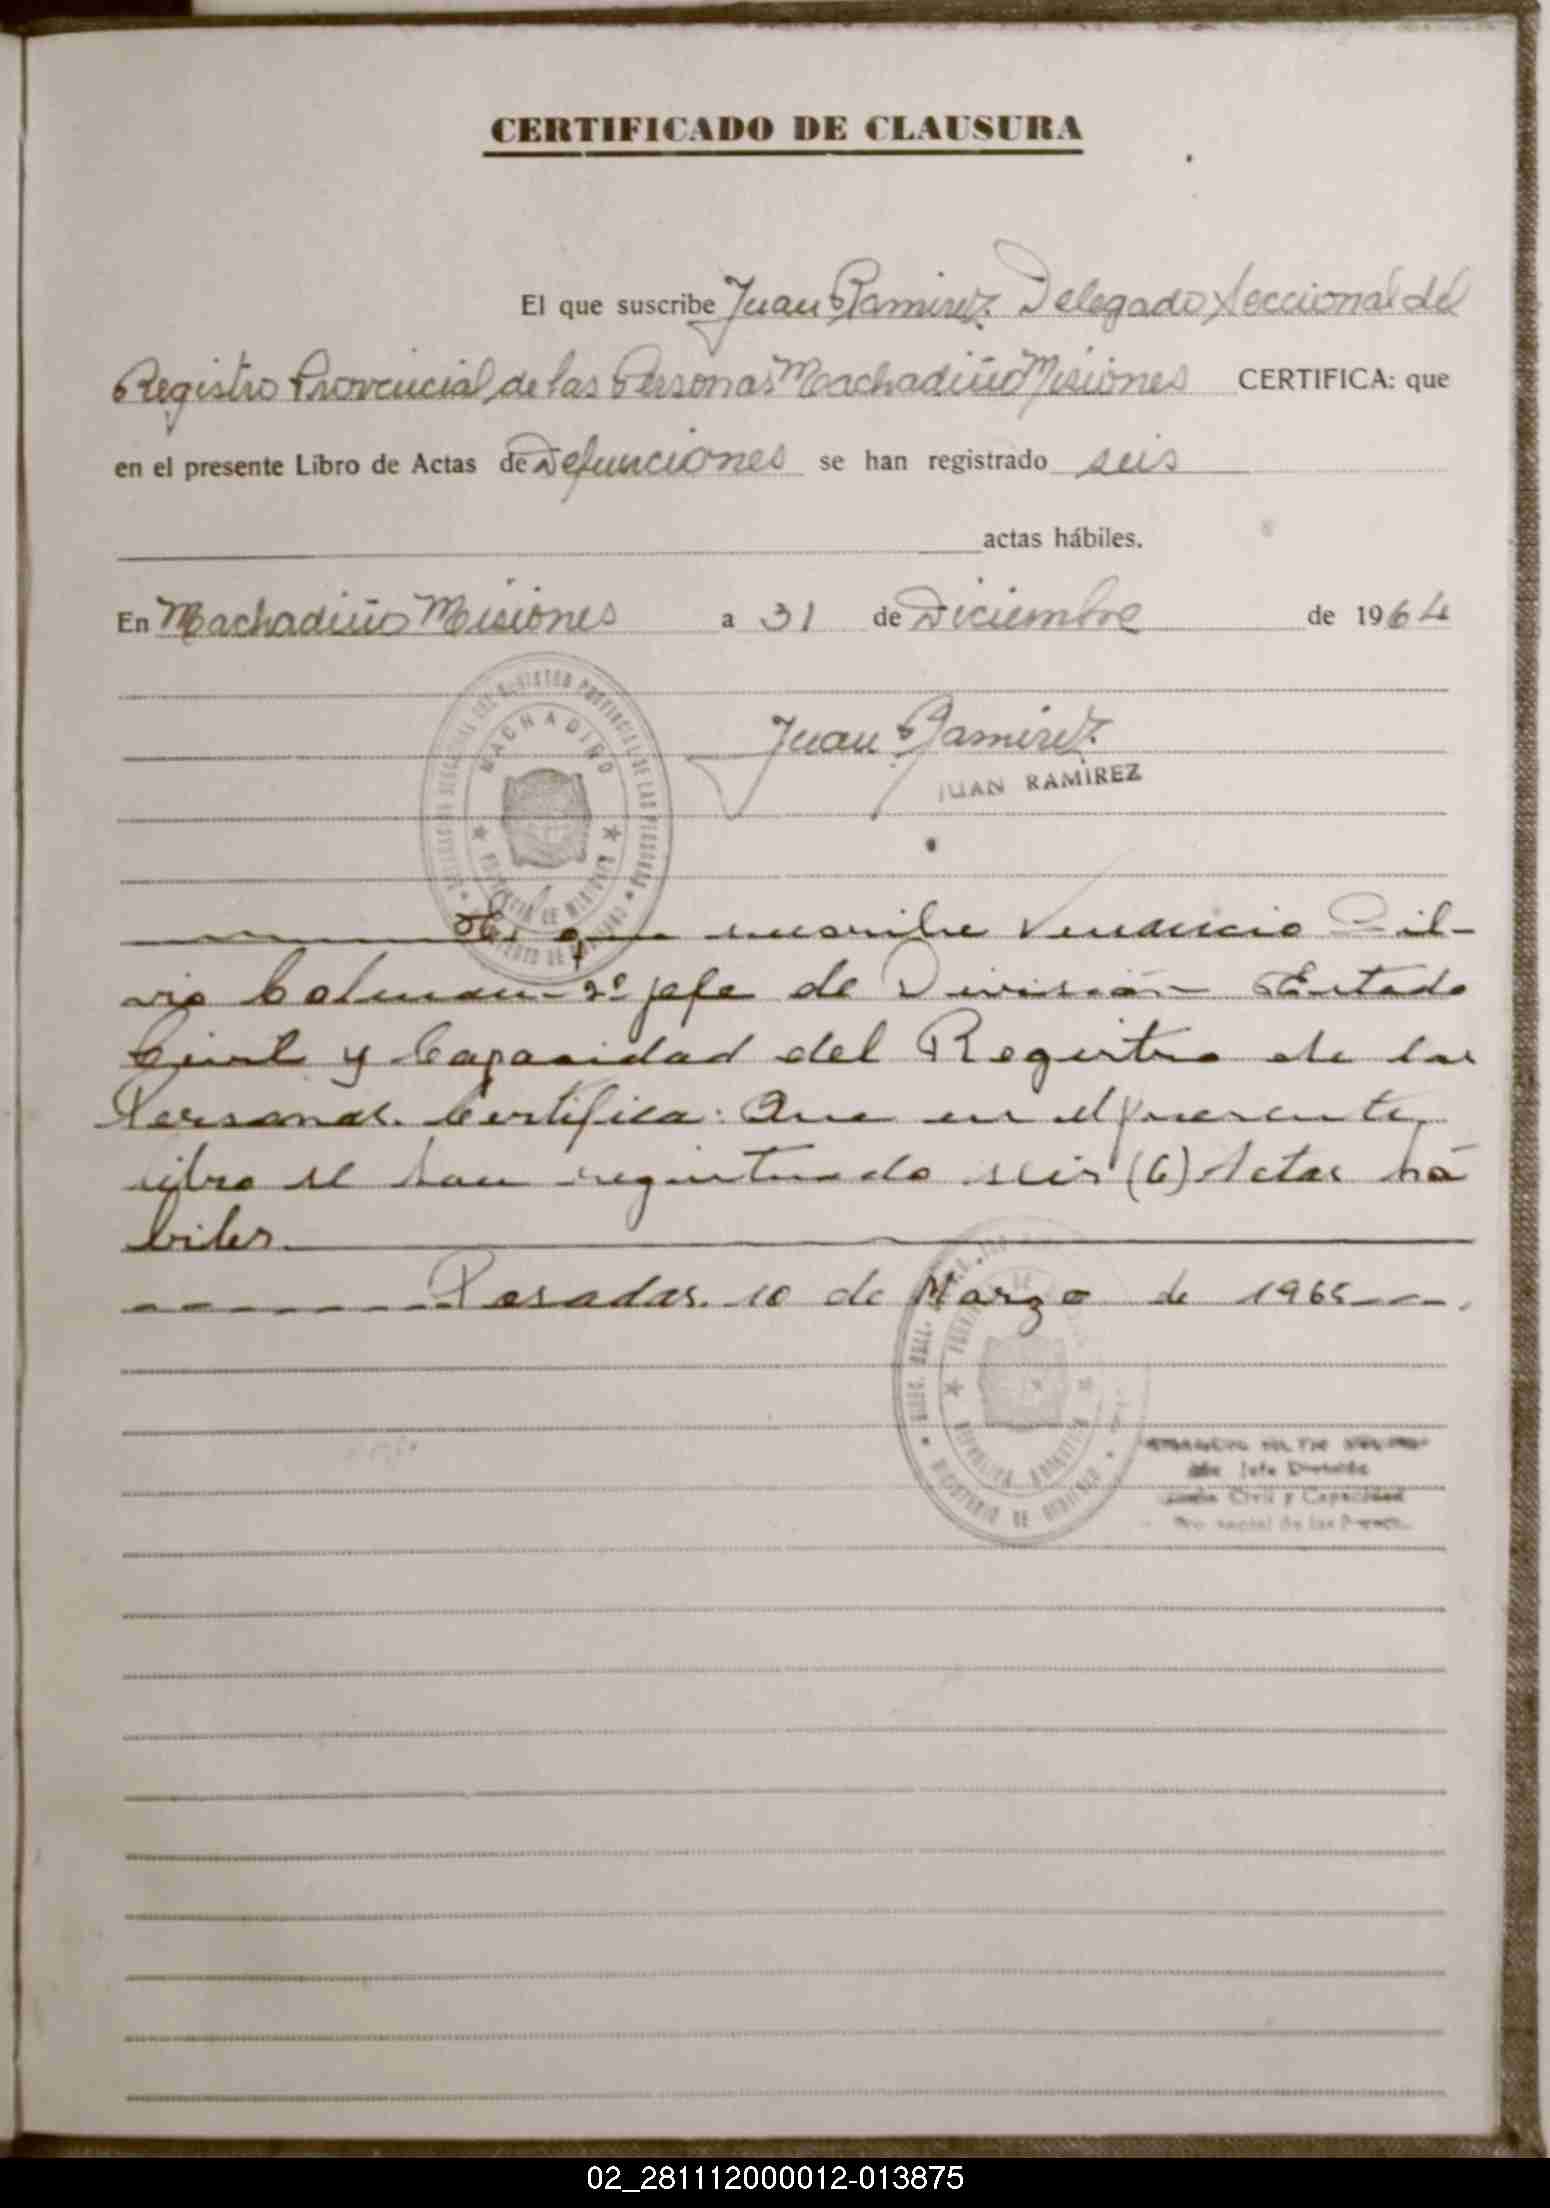 CERTIFICADO DE CLAUSURA
El que suscribe Juan Ramirez Delegado Seccional del
Registro Provincial de las Personas Machadiño Misiones CERTIFICA: que
en el presente Libro de Actas de Defunciones se han registrado seis
actas hábiles.
En Machadiño Misiones a 31 de Diciembre de 1964
MACHADIÑO
PROVINCIA DE MISIONES
Juan Ramirez
JUAN RAMIREZ
El que suscribe Venancio Sil-
vio Colman - 2º jefe de División Estado
Civil y Capacidad del Registro de las
Personas. Certifica: Que en el presente
libro se han registrado seis (6) Actas há
biles.
Posadas. 10 de Marzo de 1965
REPUBLICA ARGENTINA
MINISTERIO DE GOBIERNO
Jefe División
Civil y Capacidad
de las
02_281112000012-013875